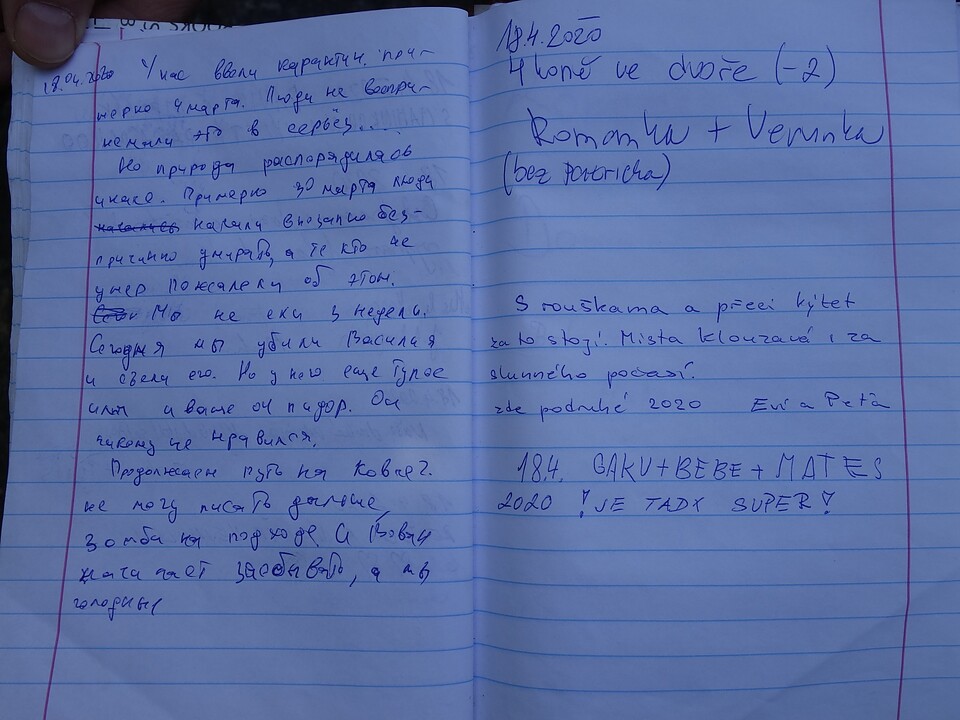 18.04.2020 У нас ввели карантин, при-
мерно 4 марта. Люди не воспри-
немали это в серьёз....
Но природа распорядилась
инасе. Примерно 30 марта люди
начали внезапно без-
причинно умирать, а те кто не
умер пожалели об этом.
Мы не ели 3 недели.
Сегодня мы убили Василия
и съели его. Но у него ещё тупое
и ваше он пидор. Он
никому не нравился.
Продолжаем путь на Ковчег.
не могу писать дальше,
Зомби на подходе. А Вован
начинает заёбывать, а мы
голодные
18.4.2020
4 koně ve dvoře (-2)
Romanka + Verunka
(bez
S rouškama a přeci výlet
za to stojí. Místa klouzavá i za
slunného počasí.
zde podruhé 2020 Evi a Peťa
18.4. GAKU+BEBE+MATES
2020 ! JE TADY SUPER !